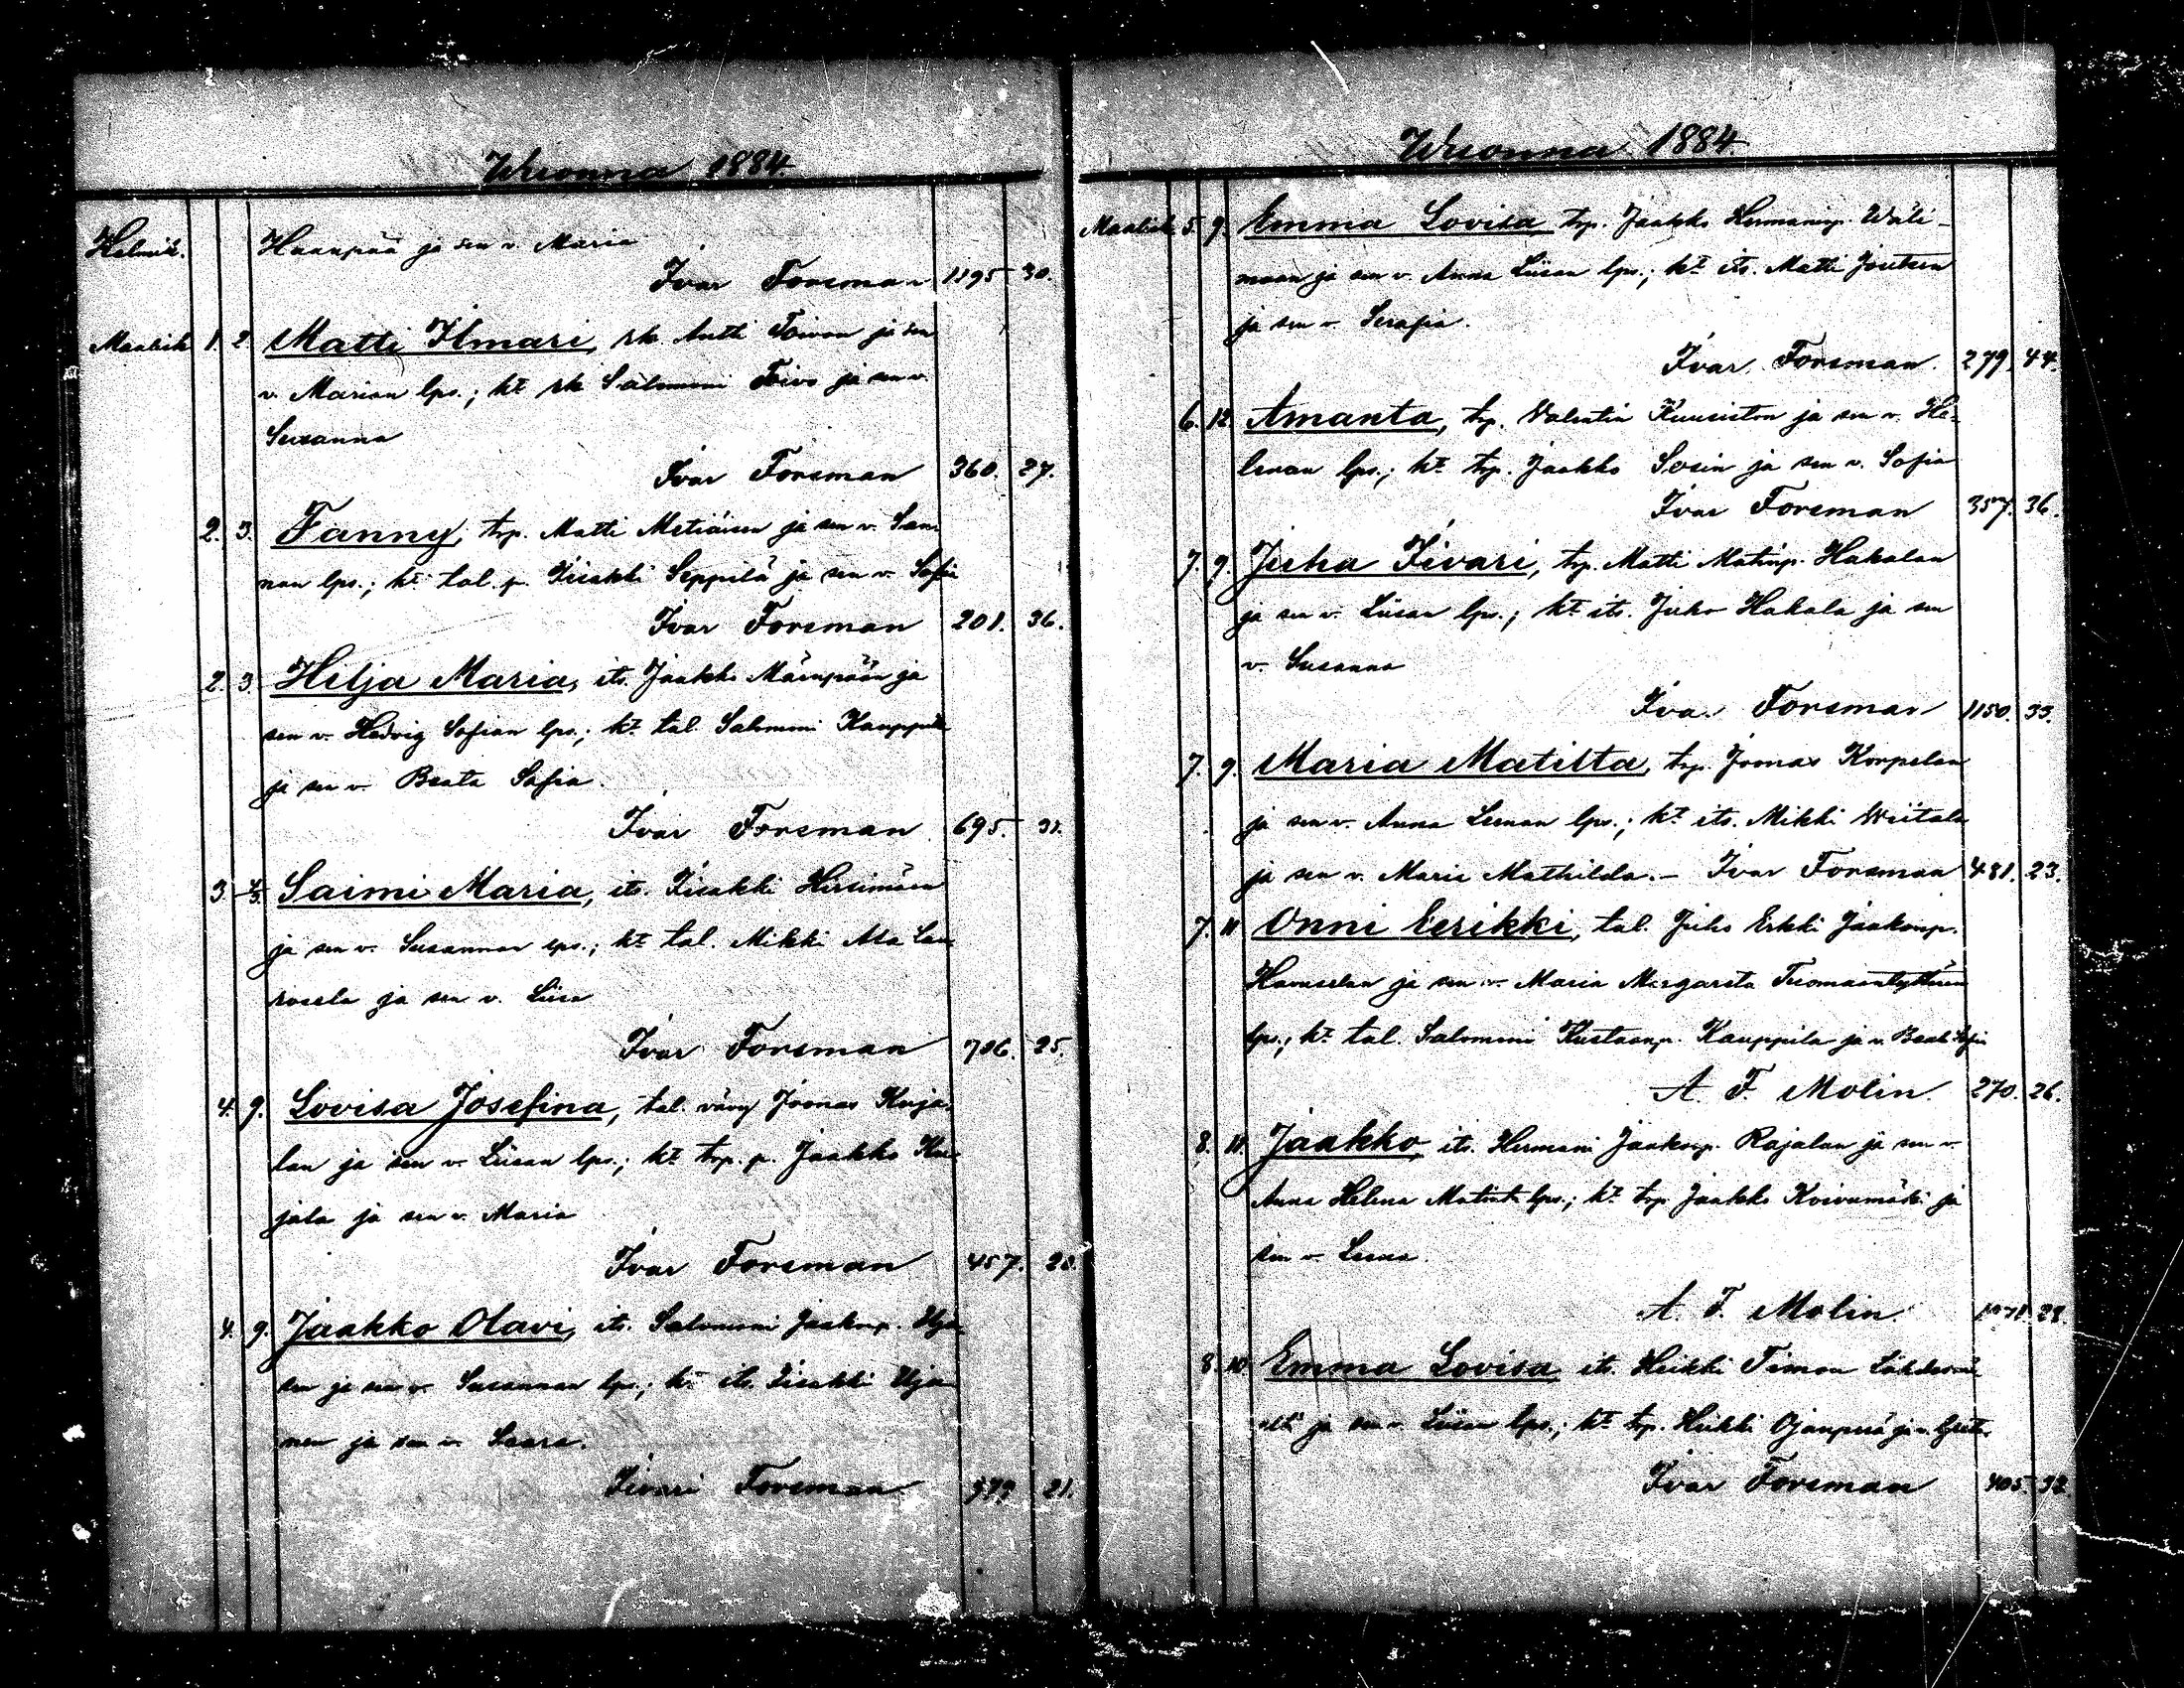 Wuonna 1884.
Helmik. Haanpää ja sen v. Maria
Ivar Forsman 1195 30.
Maalisk 1. 2. Matti Ilmari, rk. Antti Toivon ja sen
v. Marian lps.; kt rk Salomoni Toivo ja sen v.
Susanna
Ivar Forsman 360. 27.
2. 3. Fanny, trp. Matti Metiäisen ja sen v. San-
nan lps.; kt tal. p. Iisakki Seppilä ja sen v. Sofia
Ivar Forsman 201. 36.
2. 3. Hilja Maria, its. Jaakko Mäenpään ja
sen v. Hedvig Sofian lps.; kt tal. Salomoni Kauppila
ja sen v. Beata Sofia.
Ivar Forsman 695.
3. Saimi Maria, its. Iisakki Hirsimäen
ja sen v. Susannan lps.; kt tal. Mikki Ala Lau-
rosela ja sen v. Liisa
Ivar Forsman 706. 25.
4. 9. Lovisa Josefina, tal. vävy Joonas Kuja-
lan ja sen v. Liisan lps.; kt trp. p. Jaakko Ku-
jala ja sen v. Maria
Ivar Forsman 457.
4. 9. Jaakko Olavi, its. Salomoni Jaakonp. Ojа-
sen ja sen v. Susannan lps.; kt its. Iisakki Oja-
nen ja sen v. Saara.
Iivari Forsman 579 21.
Wuonna 1884.
Maalisk. 5. 9. Emma Lovisa trp. Jaakko Hermaninp. Wäli-
maan ja sen v. Anna Liisan lps.; kt its. Matti Joutsen
ja sen v. Serafia.
Ivar Forsman. 279. 44.
6. 12. Amanta, trp. Valentin Kuusiston ja sen v. He-
lenan lps.; kt trp. Jaakko Sorin ja sen v. Sofia
Ivar Forsman 357. 36.
7. 9. Juha Iivari, trp. Matti Matinp. Hakalan
ja sen v. Liisan lps.; kt its. Juho Hakala ja sen
v. Susanna
Ivar Forsman 1150. 33.
7. 9. Maria Matilta, trp. Joonas Korpelan
ja sen v. Anna Leenan lps.; kt its. Mikki Wiitala
ja sen v. Maria Mathilda. - Ivar Forsman 481. 23.
7. 11 Onni Eerikki, tal. Juho Erkki Jaakonp.
ja sen v. Maria Margareta Tuomaantyttären
lps.; kt tal. Salomoni Kustaanp. Kauppila ja v. Beata Sofia
A. F. Molin. 270. 26.
8. 11. Jaakko, its. Hermani Jaakonp. Rajalan ja sen v.
Anna Helena Matint. lps.; kt trp. Jaakko Koivumäki ja
sen v. Leena.
A. F. Molin. 28.
8. 10 Emma Lovisa its. Heikki Timon
ja sen v. Liisan lps.; kt trp. Heikki Ojanperä ja v. Greta.
Ivar Forsman 405. 32.